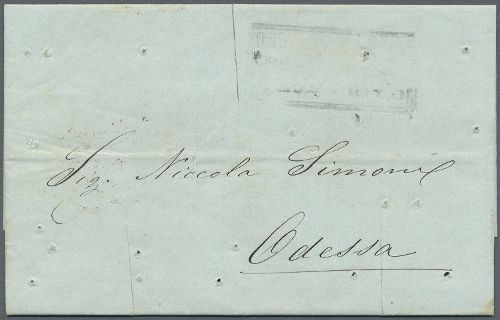 Sig. Niccola Simoni
Odessa